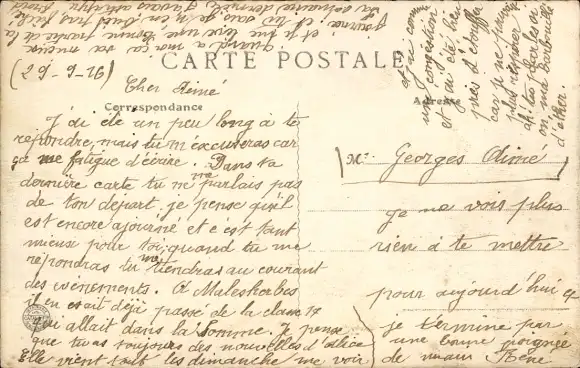 CARTE POSTALE
Correspondance
Adresse
(21-6-62)
Cher Aimé
J'ai été un peu long à te
répondre, mais tu m'excuseras car
ça me fatigue d'écrire. Dans ta
dernière carte tu me parlais pas
de ton départ, je pense qu'il
est encore ajourné et c'est tant
mieux pour toi, quand tu me
répondras tu me tiendras au courant
des évènements. A Malesherbes
il en était déjà passé de la class 17
qui allait dans la Somme. Je pense
que tu as toujours des nouvelles d'alice
Elle vient tout les dimanche me voir
quand a moi ça va mieux
et je me lève une bonne partie de la
journée, et
et j'ai
une congestion
et j'ai été bien
près d'étouffer
car je ne pouvais
plus respirer
on me barbouille
d'éther.
Mr Georges Aimé
je ne vois plus
rien à te mettre
pour aujourd'hui et
je termine par
une bonne poignée
de main René